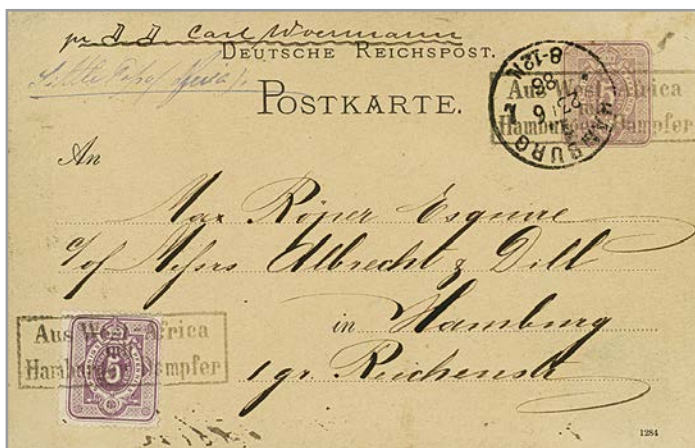 pr D. D. Carl Woermann
DEUTSCHE REICHSPOST.
POSTKARTE.
HAMBURG
1
23/6
86
8-12N
Aus West-Africa
mit
Hamburger Dampfer
An
Max Röper Esquire
c/of Messrs Albrecht & Dill
in Hamburg
1 gr. Reichenstr
Aus West-Africa
mit
Hamburger Dampfer
5
1284